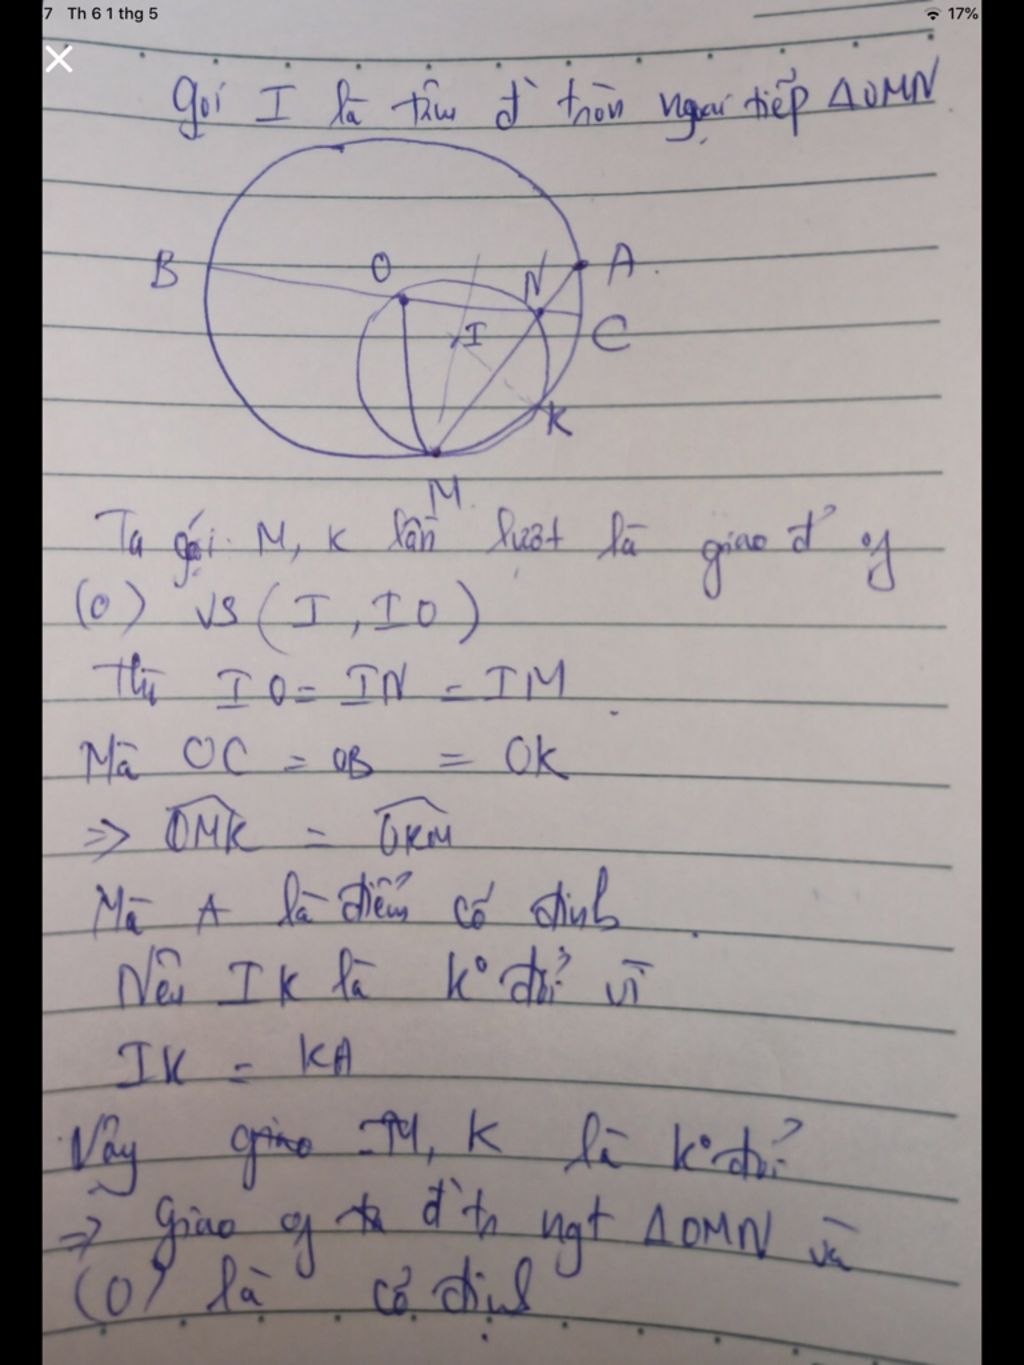 7 Th 6 1 thg 5
17%
gọi I là tâm đ` tròn ngoại tiếp ΔOMN
B
O
N
A
I
C
K
M
Ta gọi M, K lần lượt là giao đ' of
(O) vs (I, IO)
Thì IO = IN = IM
Mà OC = OB = OK
⇒ OMK = OKM
Mà A là điểm cố định
Nên IK là k° đổi vì
IK = KA
Vậy giao M, K là k° đổi
⇒ giao of đ`tr ngt ΔOMN và
(O) là cố định